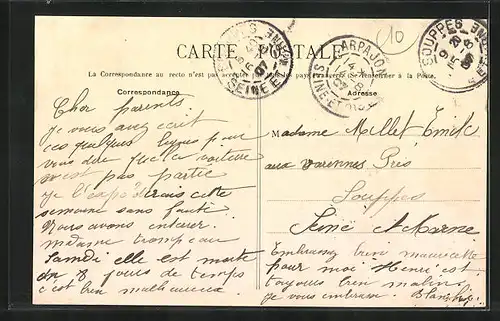 CARTE POSTALE
La Correspondance au recto n'est pas acceptée par tous les pays étrangers (Se renseigner à la Poste).
Correspondance
Adresse
10
SOUPPES
SEINE ET MARNE
ARPAJON
SEINE-ET-OISE
Cher parents.
Je vous
ces quelques lignes pour
vous dire que la voiture
n'est pas partie
Je l'
semaine sans faute
Nous avons enterer
madame trompeau
Samdi elle est morte
en 8 jours de temps
c'est bien malheureux
Madame Millet Emile
aux varennes Près
Souppes
Seine et Marne
Embrassez bien
pour moi Henri est
toujours bien malin
Je vous embrasse. Blanche